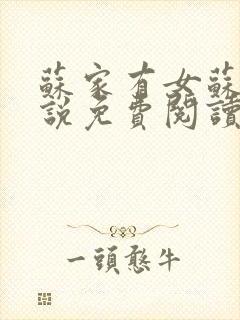 蘇家有女蘇
說免費閱讀
一頭憨牛